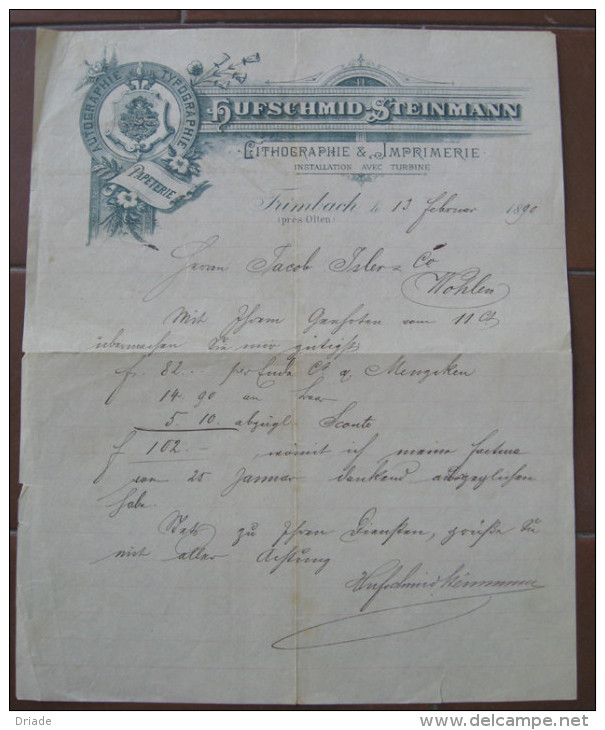 AUTOGRAPHIE TYPOGRAPHIE
PAPETERIE
HUFSCHMID-STEINMANN
LITHOGRAPHIE & IMPRIMERIE
INSTALLATION AVEC TURBINE
Trimbach le 13 Februar 1890
(près Olten)
Herren Jacob Isler & Co
Wohlen
Mit Ihrem Geehrten vom 11 Ct
übermachen Sie mir gütigst
fr. 82.- per Ende Ct a/ Menziken
14.90 an baar
5.10. abzügl. Sconto
f 102.- , womit ich meine factura
von 25 Januar dankend ausgeglichen
habe.
Stets zu Ihren Diensten, grüße Sie
mit aller Achtung
Hufschmid Steinmann
Driade
delcampe.net